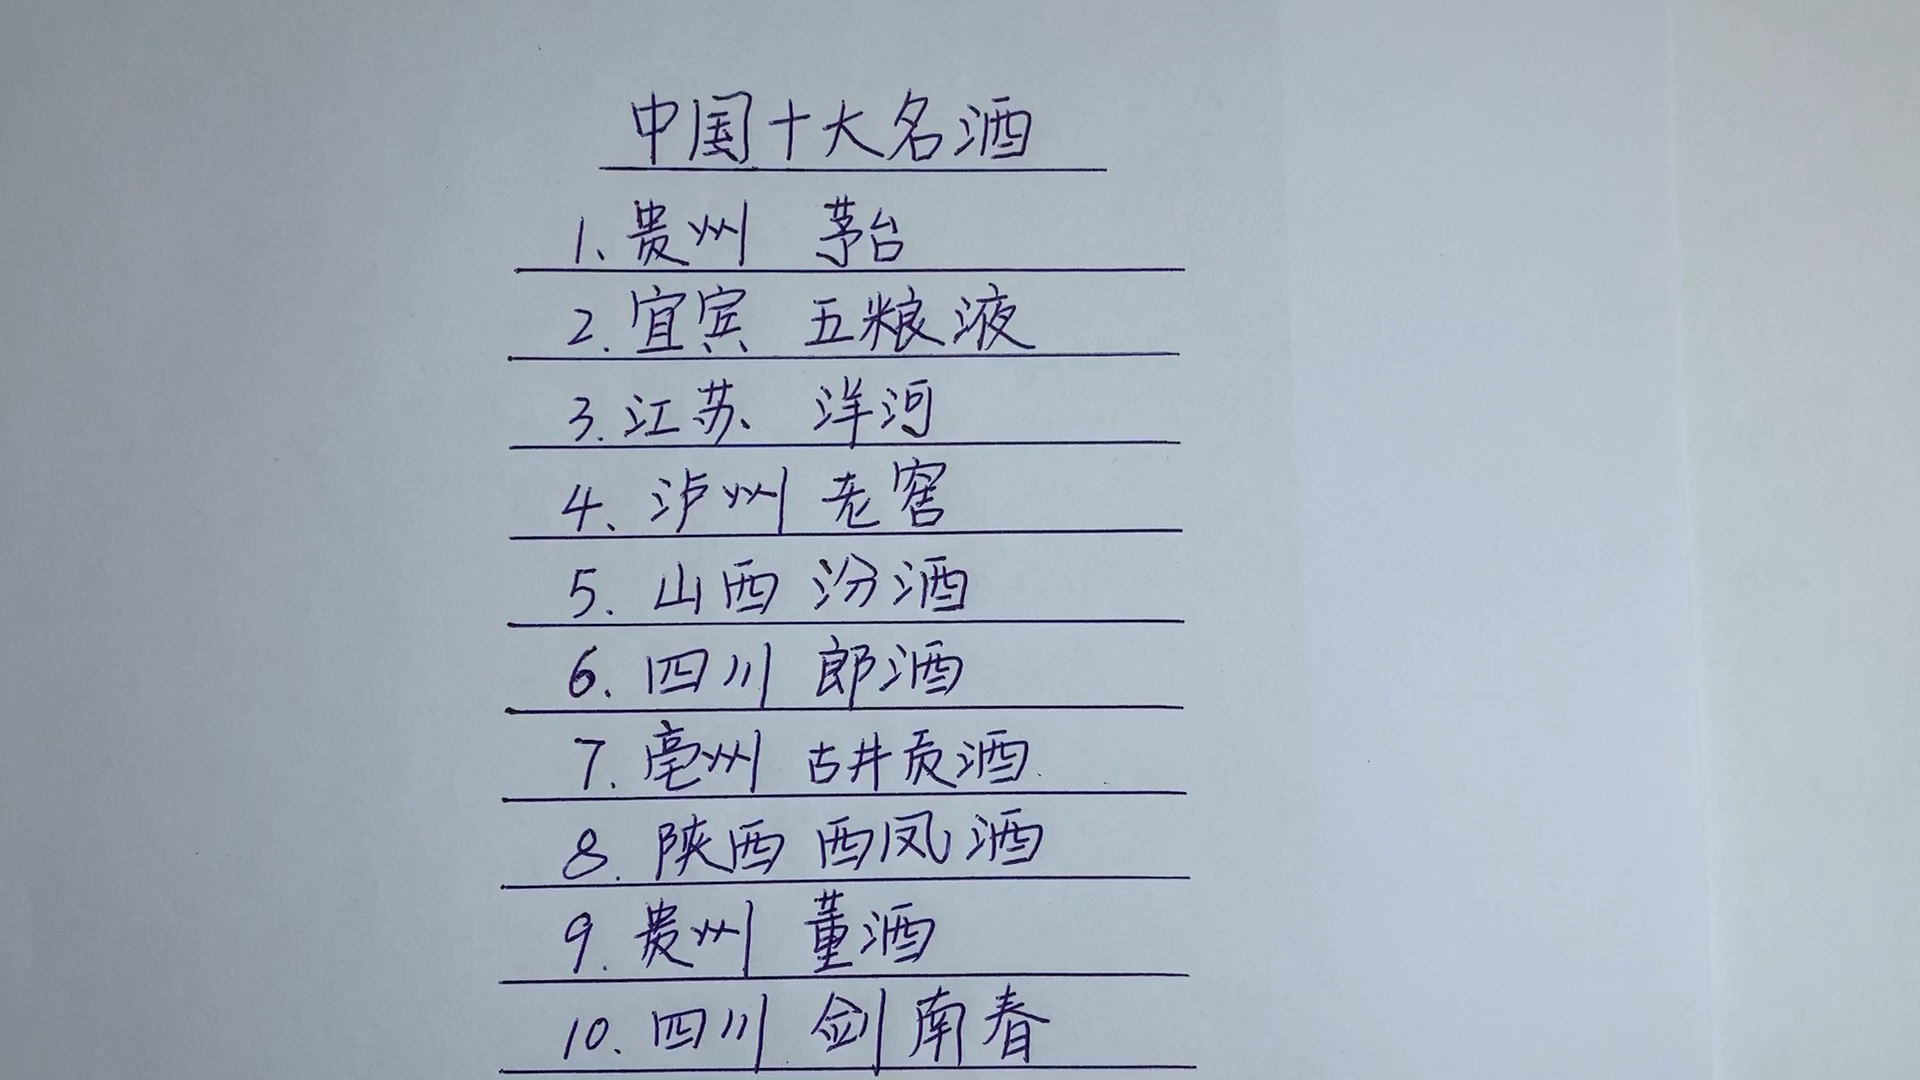 中国十大名酒
1、贵州 茅台
2. 宜宾 五粮液
3. 江苏 洋河
4、泸州 老窖
5. 山西 汾酒
6. 四川 郎酒
7. 亳州 古井贡酒
8. 陕西 西凤酒
9. 贵州 董酒
10. 四川 剑南春